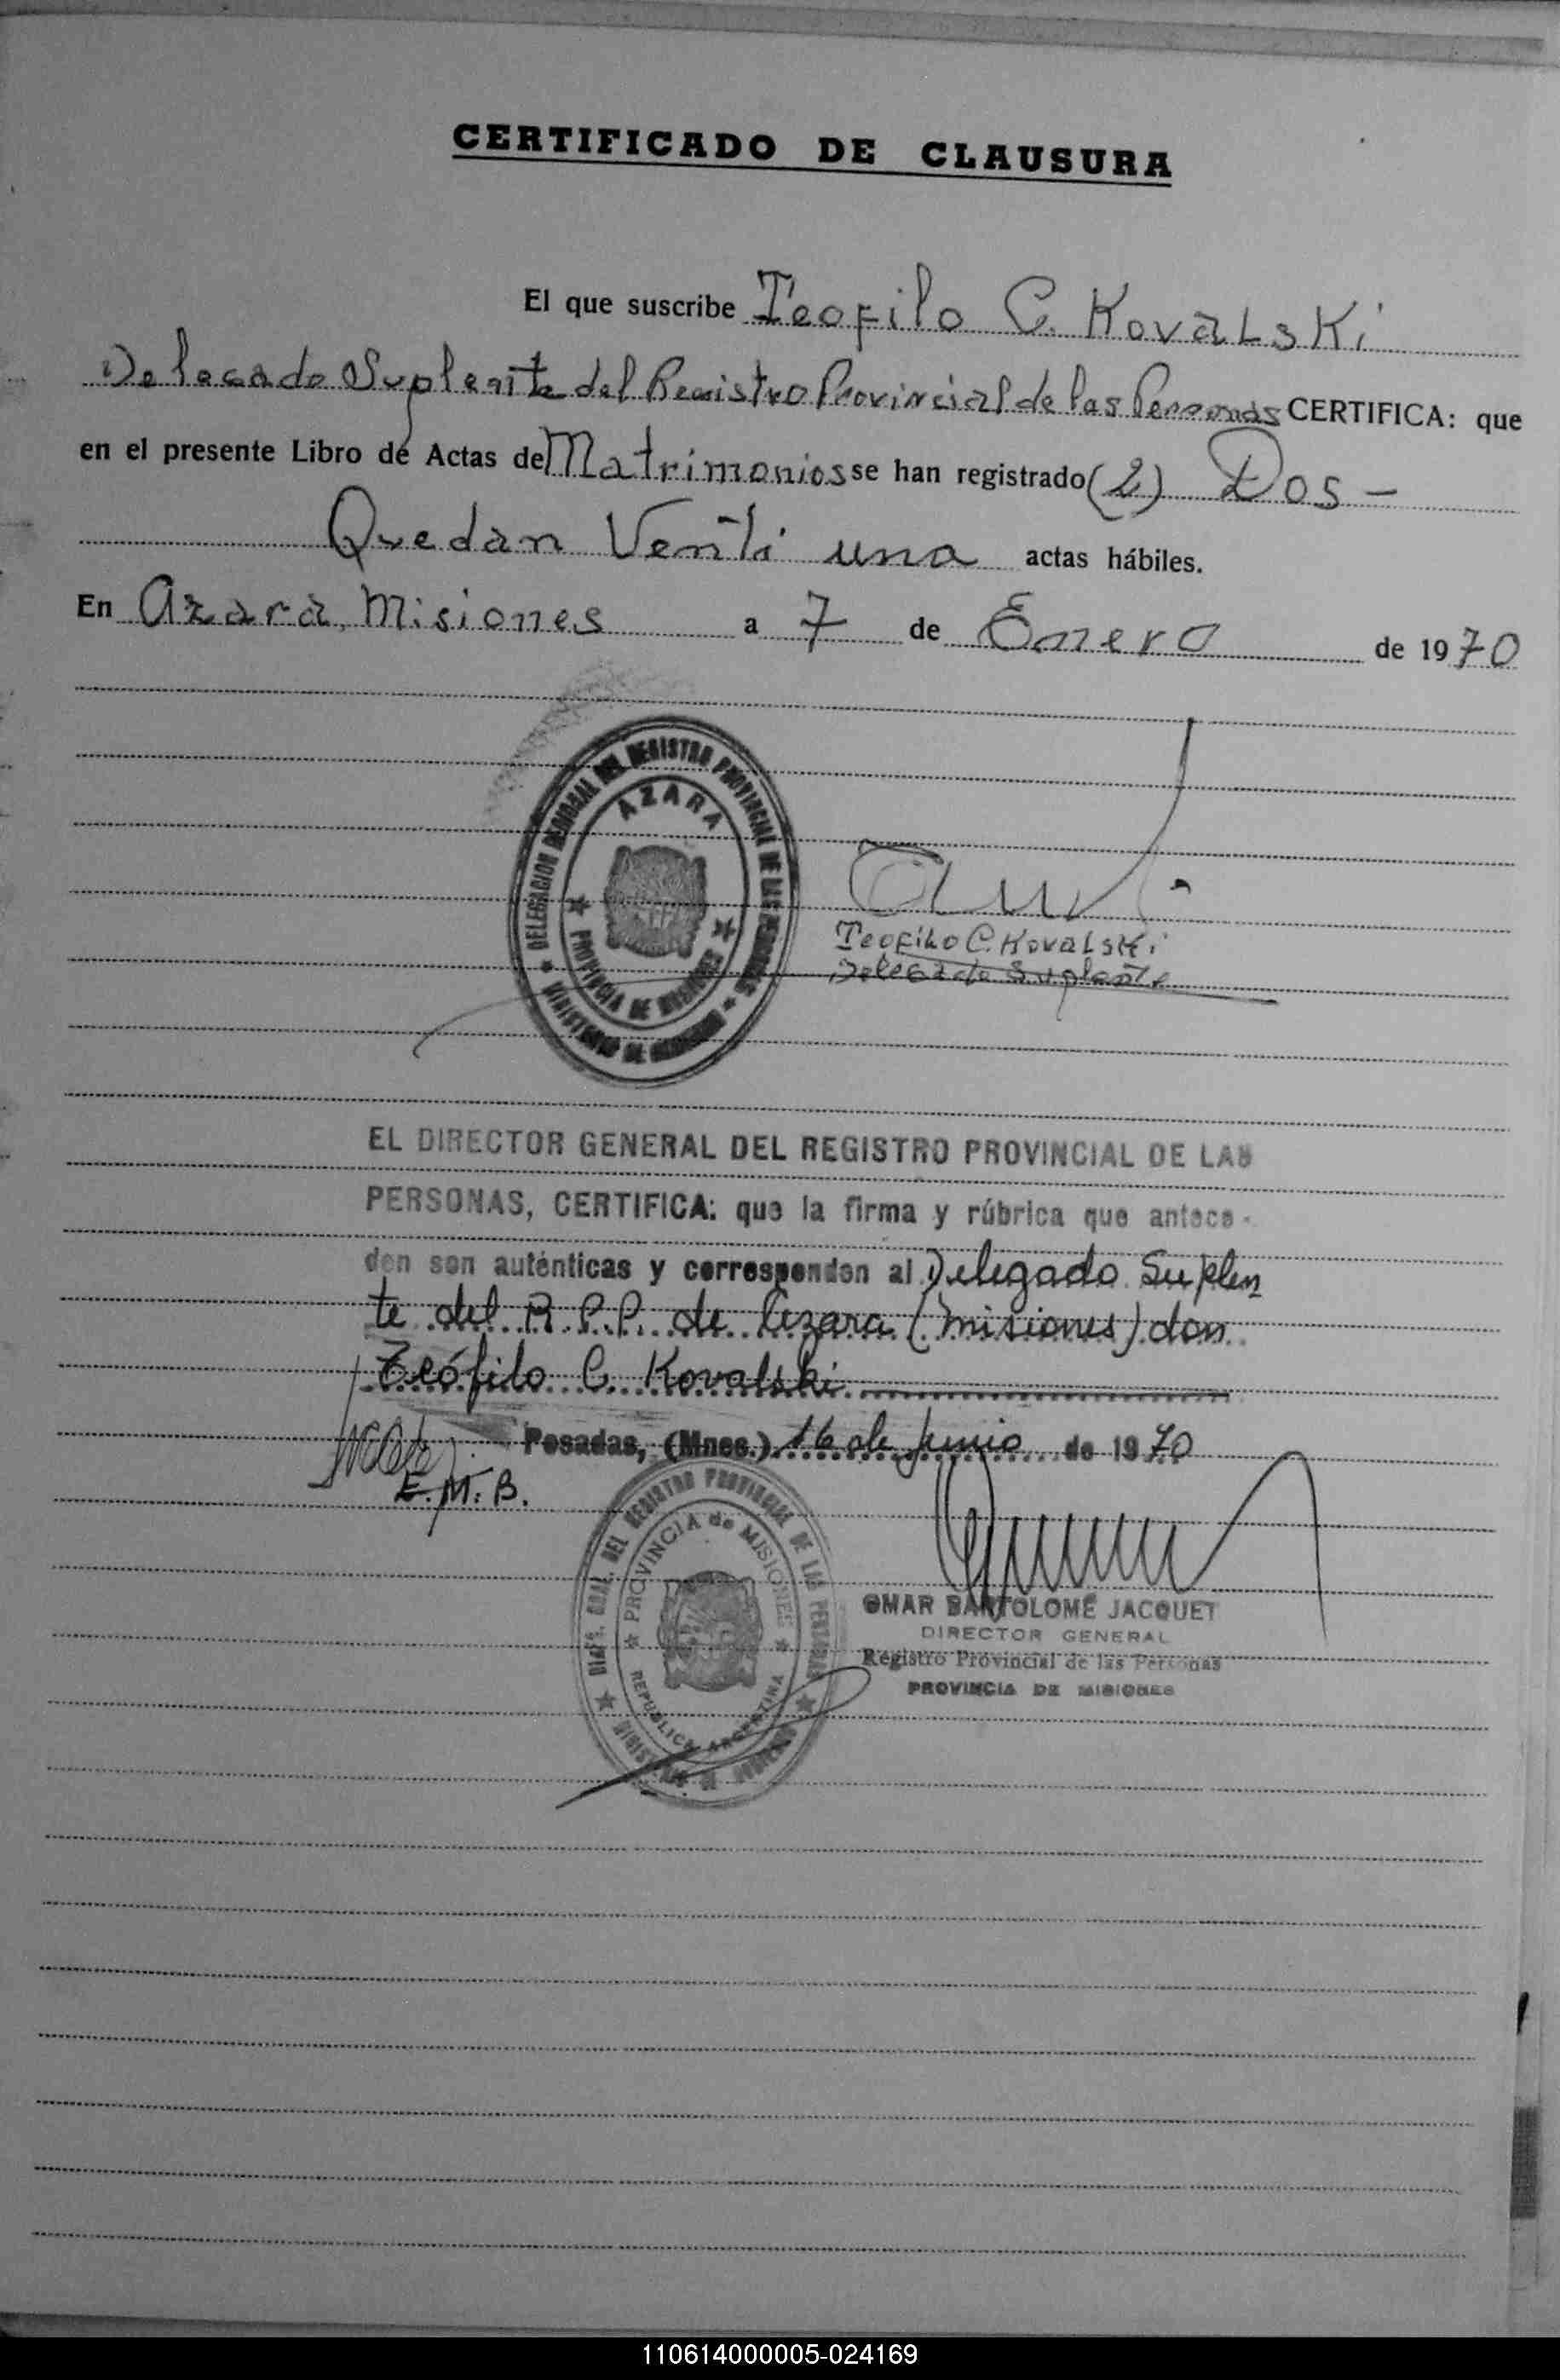 CERTIFICADO DE CLAUSURA
El que suscribe Teofilo C. Kovalski
Delegado Suplente del Registro Provincial de las Personas CERTIFICA: que
en el presente Libro de Actas de Matrimonios se han registrado (2) Dos -
Quedan Venti una actas hábiles.
En Azara, Misiones a 7 de Enero de 1970
DELEGACION SECCIONAL DEL REGISTRO PROVINCIAL DE LAS PERSONAS
AZARA
PROVINCIA DE MISIONES
MINISTERIO DE GOBIERNO
Teofilo C. Kovalski
Delegado Suplente
EL DIRECTOR GENERAL DEL REGISTRO PROVINCIAL DE LAS
PERSONAS, CERTIFICA: que la firma y rúbrica que antece-
den son auténticas y corresponden al Delegado Suplen
te del R.P.P. de Azara (Misiones) don
Teófilo C. Kovalski
Posadas, (Mnes.) 16 de Junio de 1970
E.M.B.
DIREC. GRAL. DEL REGISTRO PROVINCIAL DE LAS PERSONAS
PROVINCIA de MISIONES
REPUBLICA ARGENTINA
MINISTERIO DE GOBIERNO
OMAR BARTOLOMÉ JACQUET
DIRECTOR GENERAL
Registro Provincial de las Personas
PROVINCIA DE MISIONES
110614000005-024169